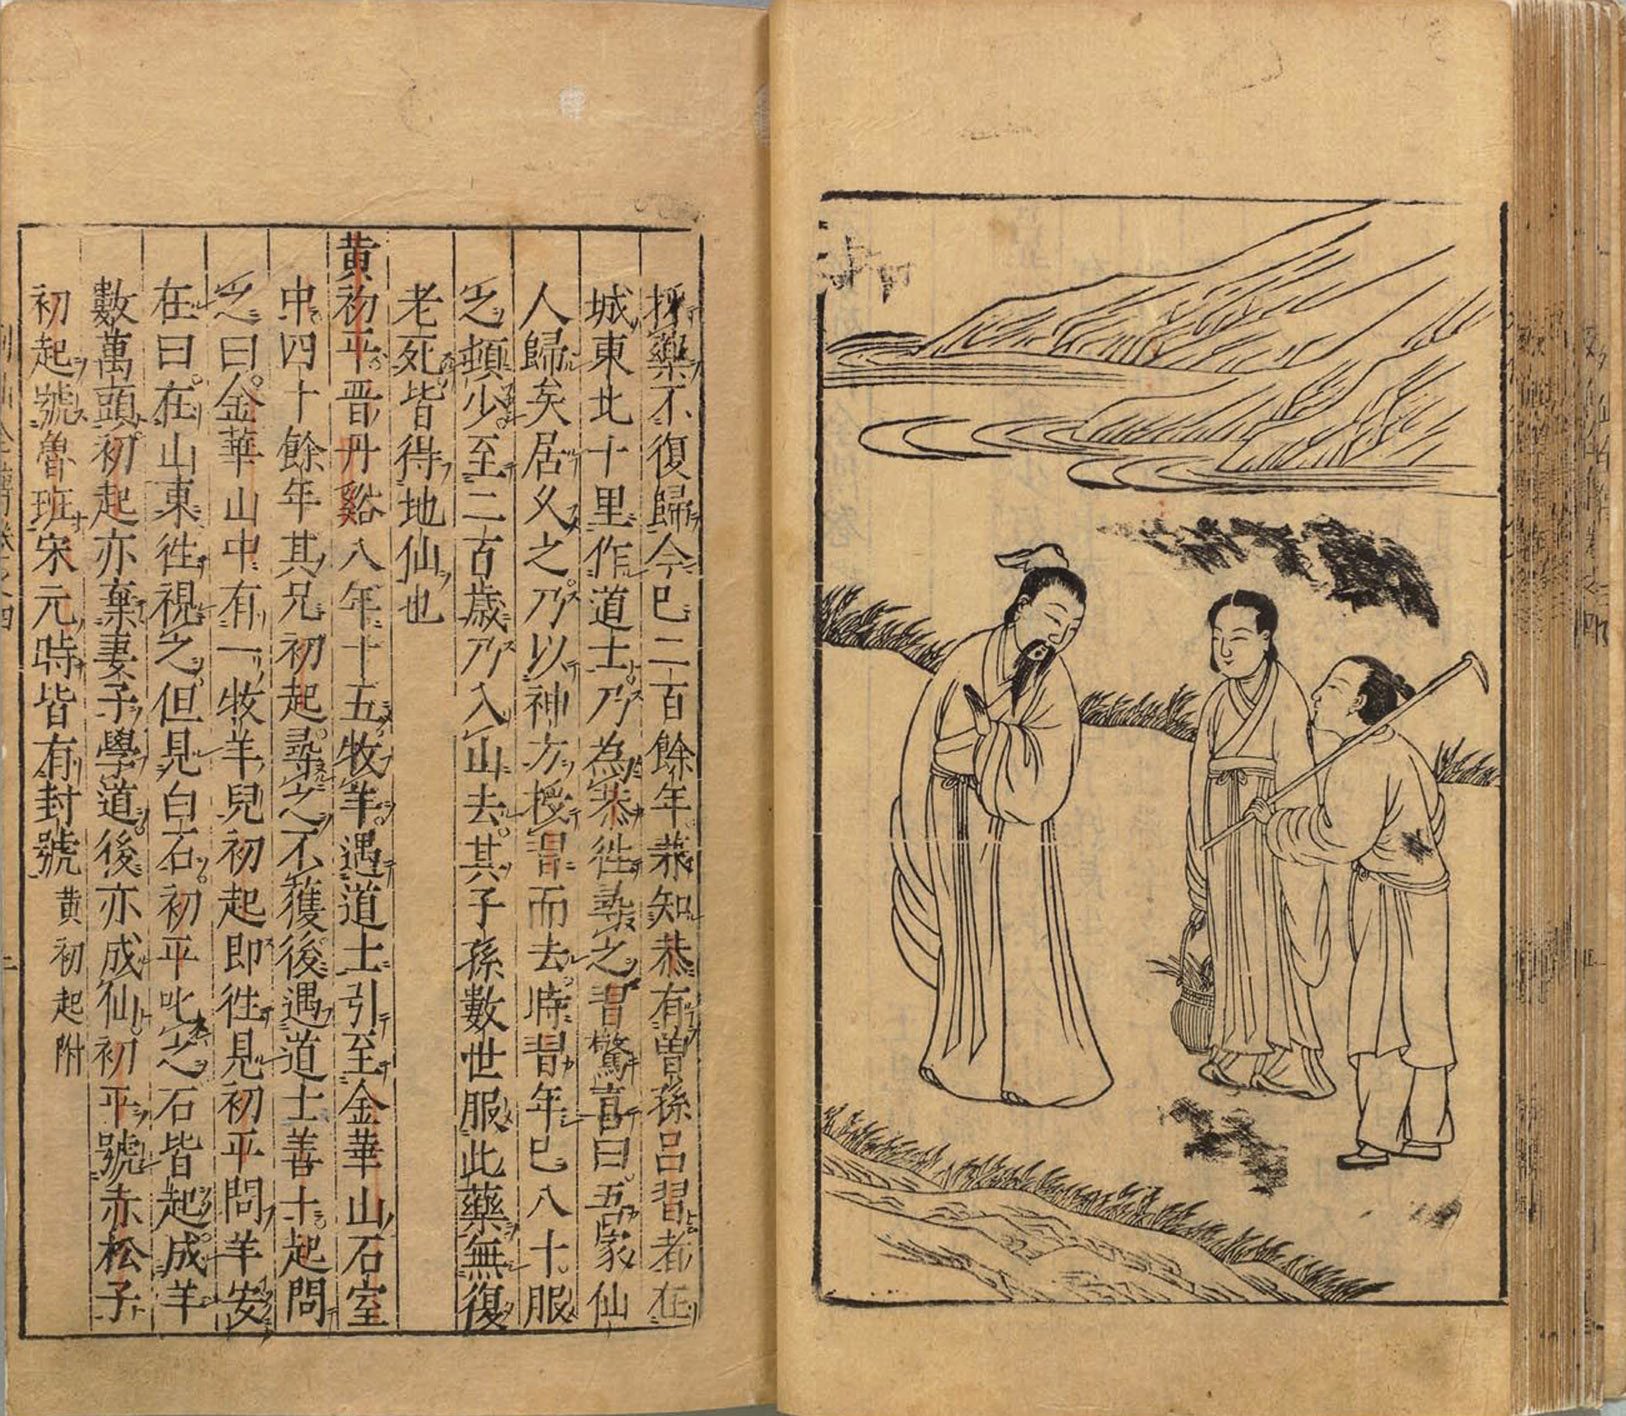 採藥不復歸今已二百餘年恭知恭有曽孫呂習者在
城東北十里作道士乃為恭徃尋之習驚喜曰吾家仙
人歸矣居乆之乃以神方授習而去時習年已八十服
之頓少至二百歳乃入山去其子孫數世服此藥無復
老死皆得地仙也
黄初平晋丹谿八年十五牧羊遇道士引至金華山石室
中四十餘年其兄初起尋之不獲後遇道士善卜起問
之曰金華山中有一牧羊兒初起即徃見初平問羊安
在曰在山東徃視之但見白石初平叱之石皆起成羊
數萬頭初起亦棄妻子學道後亦成仙初平號赤松子
初起號魯班宋元時皆有封號黄初起附